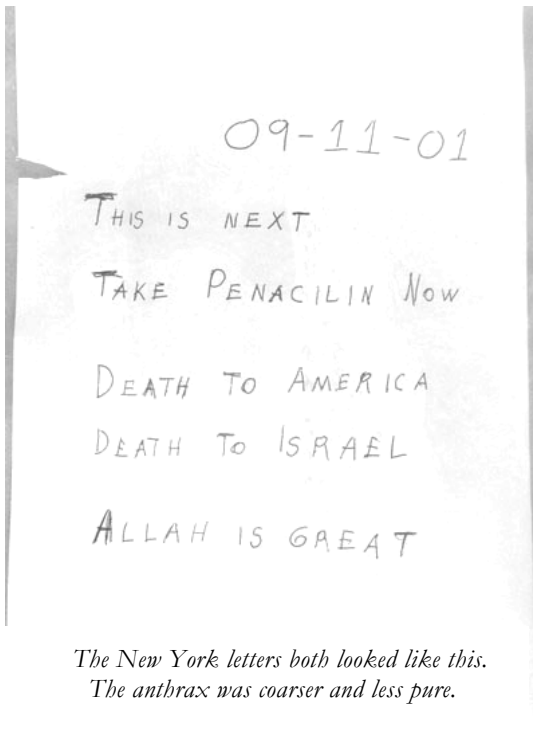 09-11-01
THIS IS NEXT
TAKE PENACILIN NOW
DEATH TO AMERICA
DEATH TO ISRAEL
ALLAH IS GREAT
The New York letters both looked like this.
The anthrax was coarser and less pure.